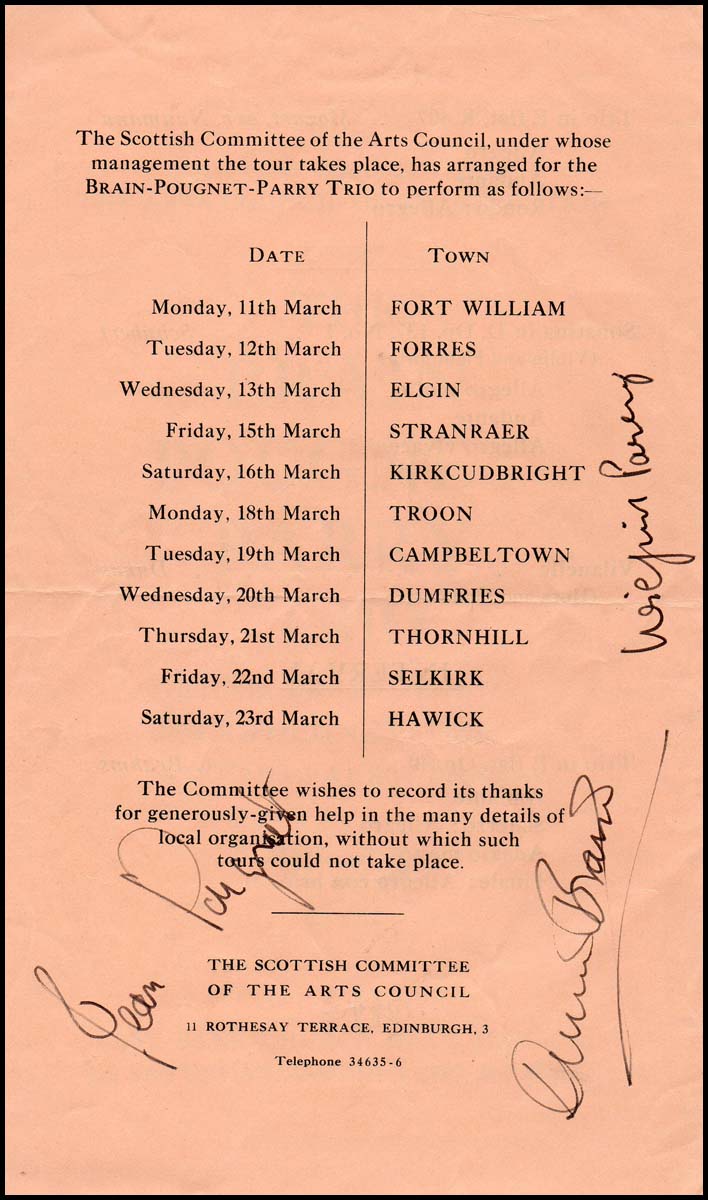 The Scottish Committee of the Arts Council, under whose
management the tour takes place, has arranged for the
BRAIN-POUGNET-PARRY TRIO to perform as follows:—
DATE TOWN
Monday, 11th March FORT WILLIAM
Tuesday, 12th March FORRES
Wednesday, 13th March ELGIN
Friday, 15th March STRANRAER
Saturday, 16th March KIRKCUDBRIGHT
Monday, 18th March TROON
Tuesday, 19th March CAMPBELTOWN
Wednesday, 20th March DUMFRIES
Thursday, 21st March THORNHILL
Friday, 22nd March SELKIRK
Saturday, 23rd March HAWICK
Wilfrid Parry
The Committee wishes to record its thanks
for generously-given help in the many details of
local organisation, without which such
tours could not take place.
Jean Pougnet
Dennis Brain
THE SCOTTISH COMMITTEE
OF THE ARTS COUNCIL
11 ROTHESAY TERRACE, EDINBURGH, 3
Telephone 34635-6